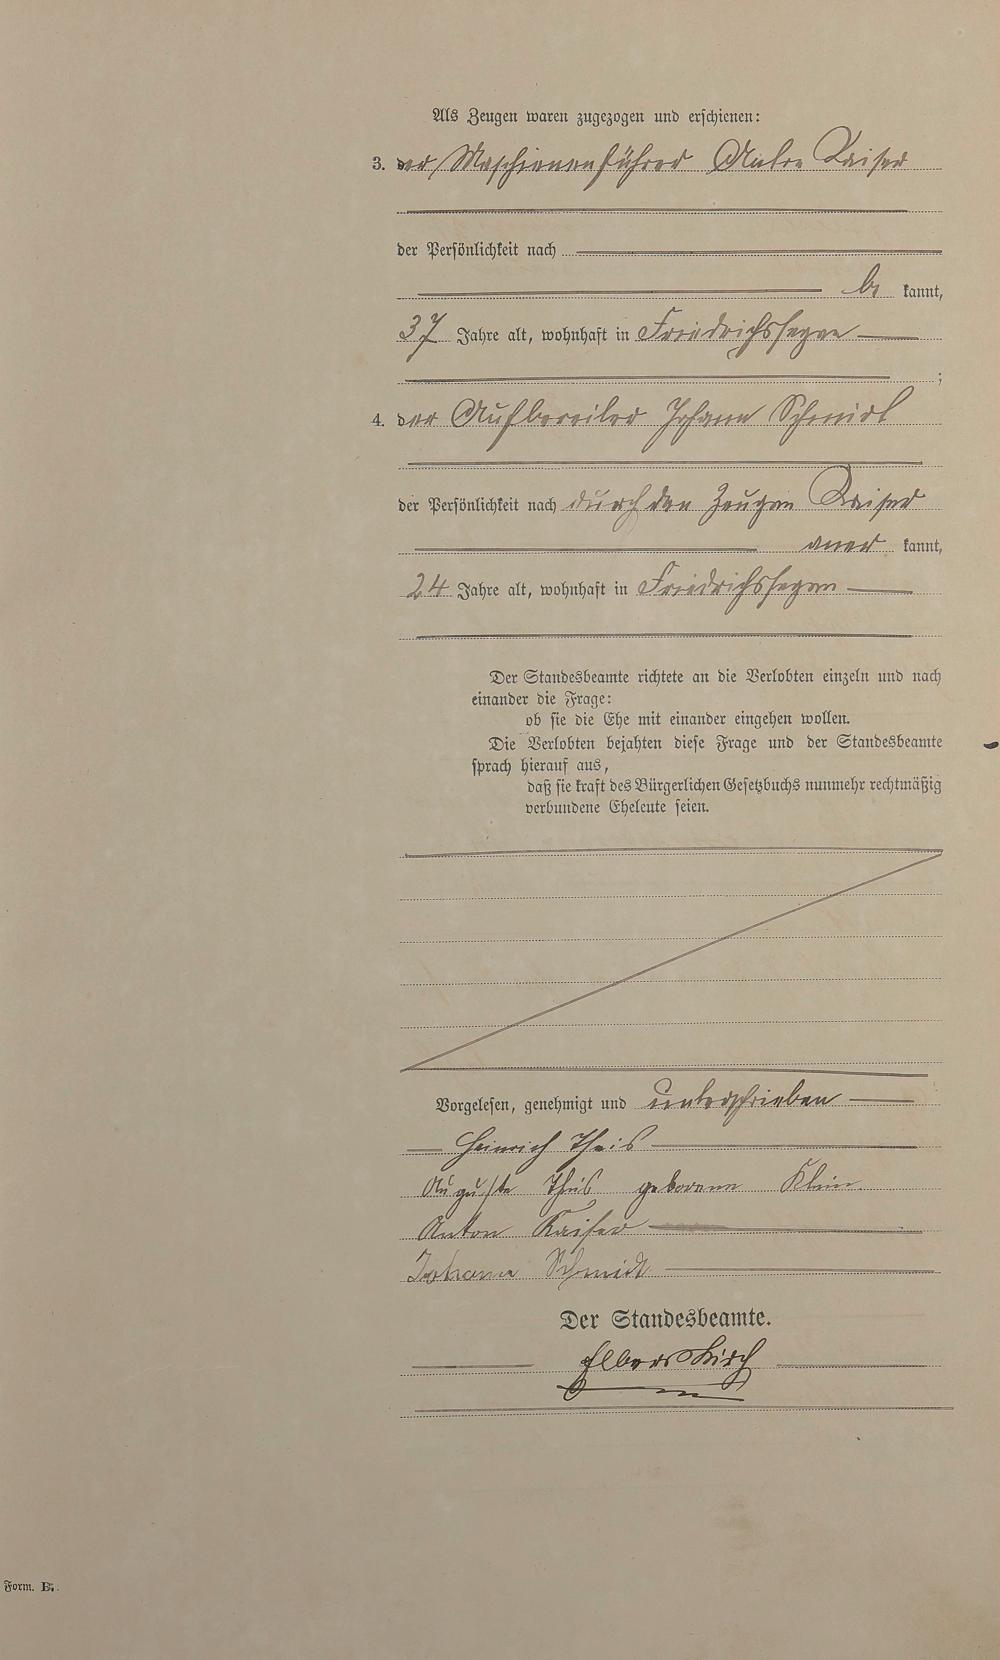 Als Zeugen waren zugezogen und erschienen:
3. der Maschienenführer Anton Kaiser
der Persönlichkeit nach
be kannt,
37 Jahre alt, wohnhaft in Friedrichssegen
;
4. der Aufbereiter Johann Schmidt
der Persönlichkeit nach durch den Zeugen Kaiser
aner kannt,
24 Jahre alt, wohnhaft in Friedrichssegen
Der Standesbeamte richtete an die Verlobten einzeln und nach
einander die Frage:
ob sie die Ehe mit einander eingehen wollen.
Die Verlobten bejahten diese Frage und der Standesbeamte
sprach hierauf aus,
daß sie kraft des Bürgerlichen Gesetzbuchs nunmehr rechtmäßig
verbundene Eheleute seien.
Vorgelesen, genehmigt und unterschrieben
Heinrich Theis
Auguste Theis geborene Klein
Anton Kaiser
Johann Schmidt
Der Standesbeamte.
Elberskirch
Form. B.